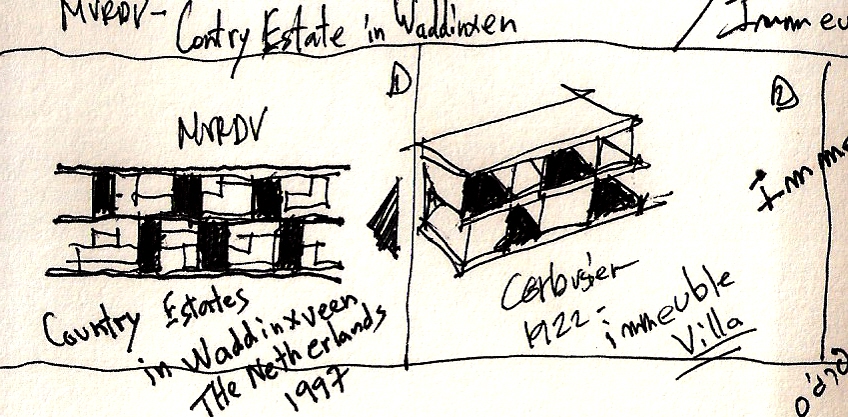 MVRDV - Contry Estate in Waddinxen
/ Immeu
1
MVRDV
Country Estates
in Waddinxveen
THe Netherlands
1997
2
Corbusier
1922 -
immeuble
Villa
Imm